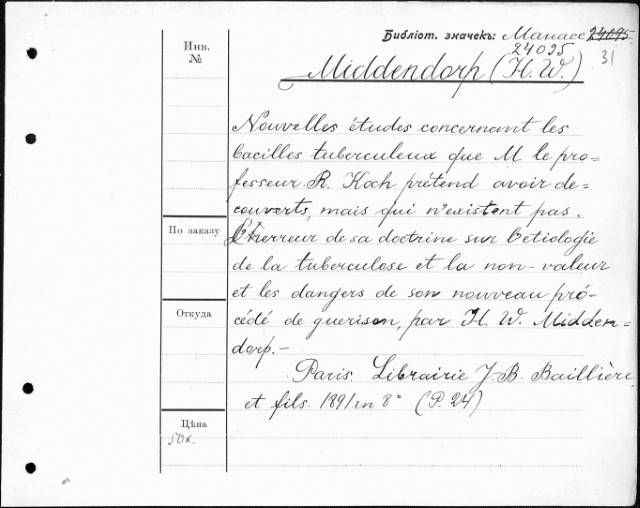 Библіот. значекъ: Манасс 24095.
24095
31
Инв.
№
Middendorp (H. W.)
Nouvelles études concernant les
bacilles tuberculeux que M. le pro=
fesseur R. Koch prétend avoir dé=
couverts, mais qui n'existent pas.
L'herreur de sa doctrine sur l'etiologie
de la tuberculose et la non-valeur
et les dangers de son nouveau pro-
cédé de guerison, par H. W. Midden-
dorp.—
Paris. Librairie J. B. Baillière
et fils. 1891 in 8° (P. 24)
По заказу
Откуда
Цѣна
50к.